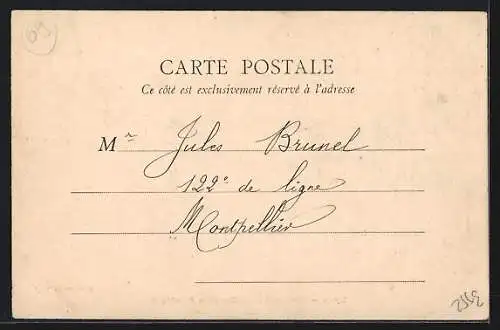 CARTE POSTALE
Ce côté est exclusivement réservé à l'adresse
Mr Jules Brunel
122e de ligne
Montpellier